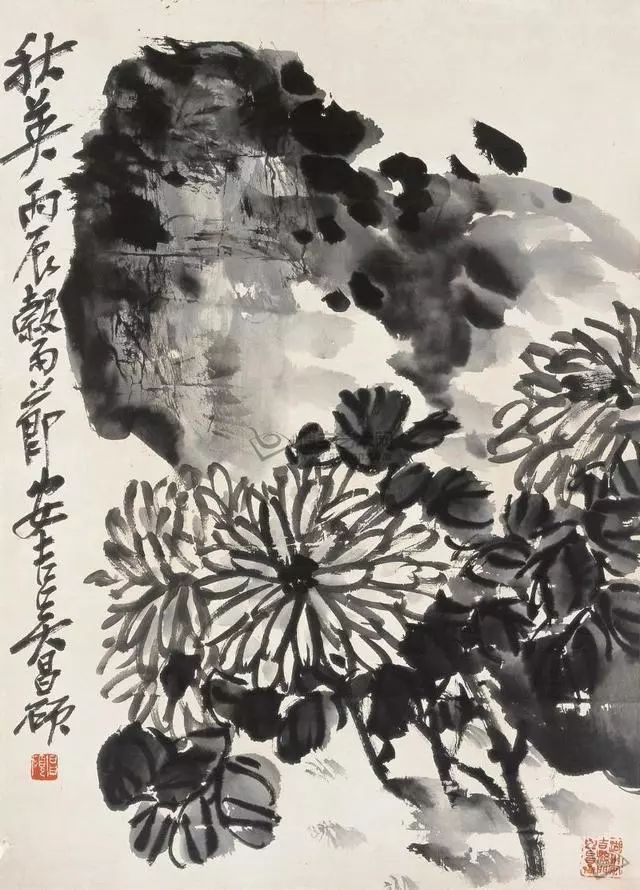 秋英丙辰穀雨節安吉吳昌碩